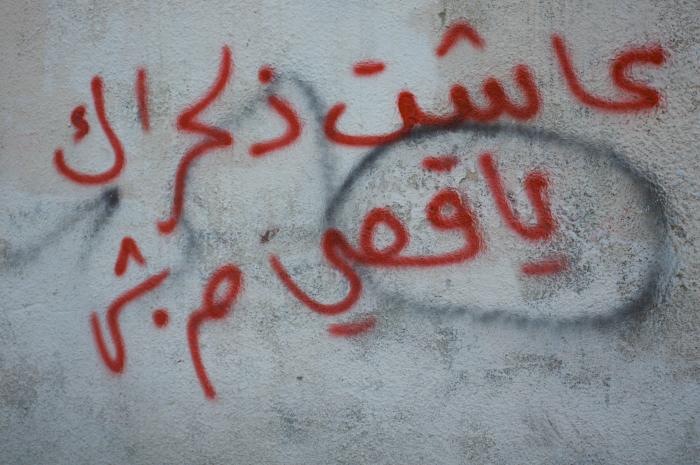 عاشت ذكراك
ياقصي